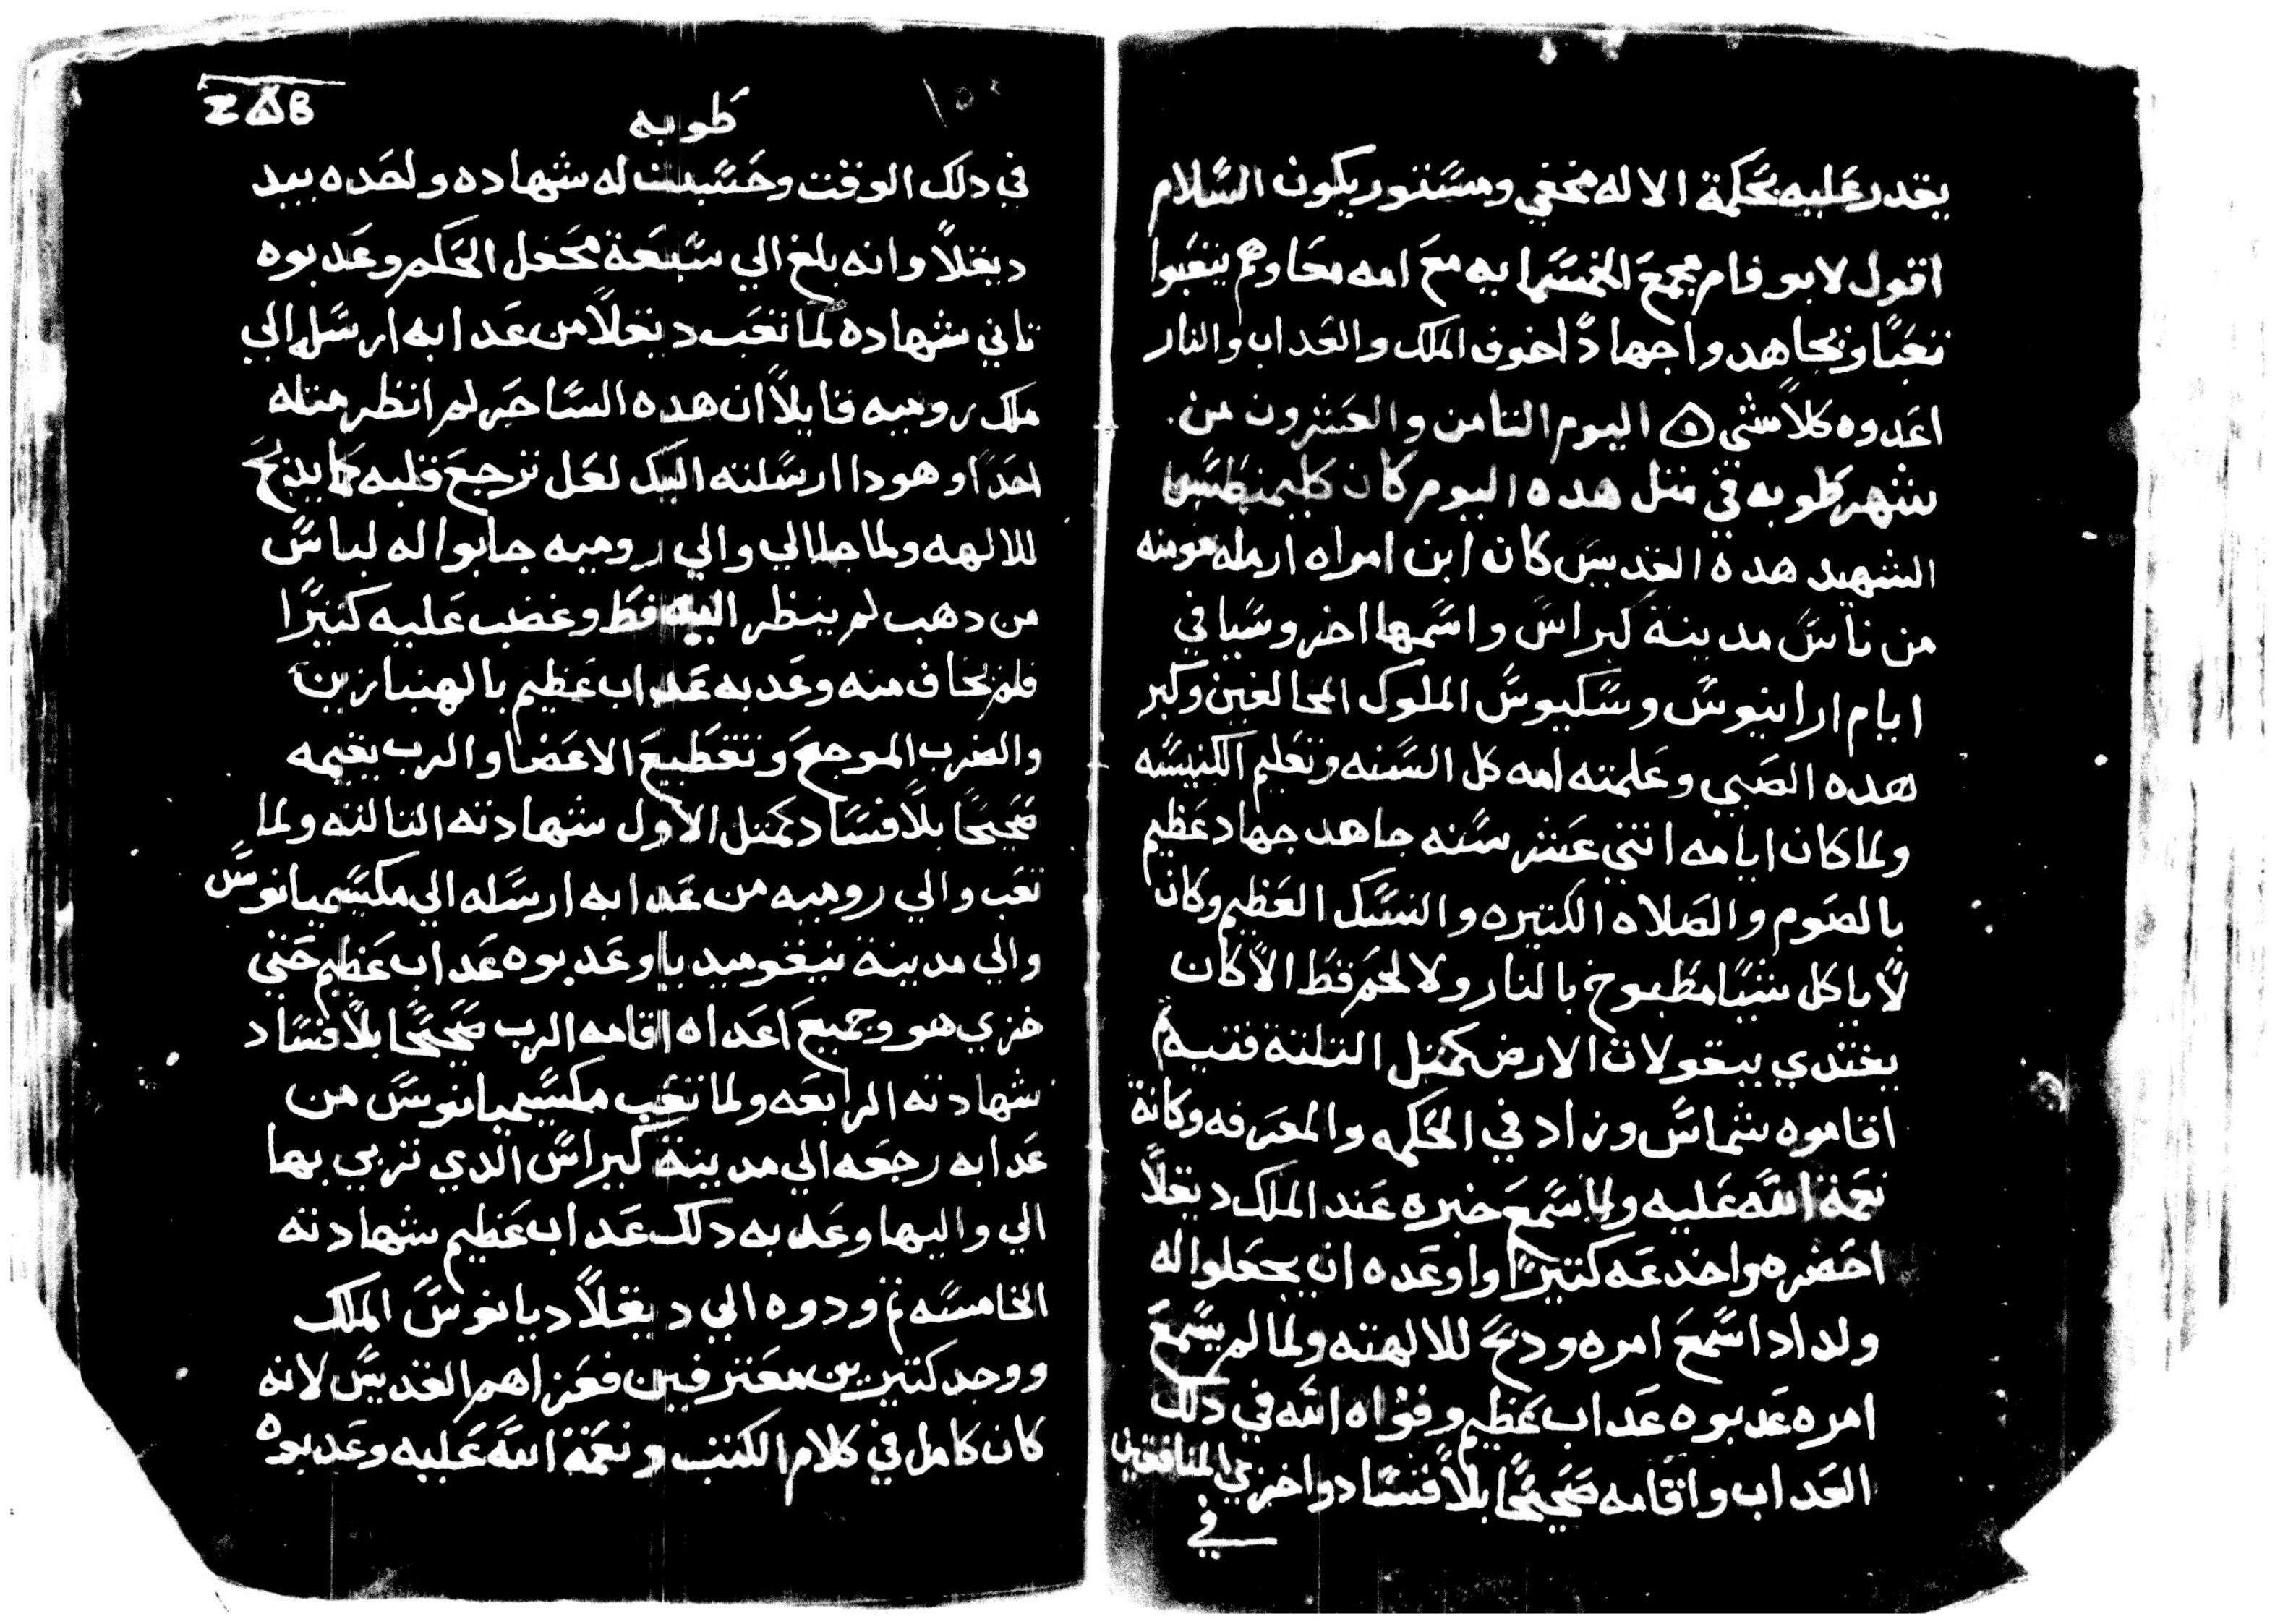 يقدر عليه بحكمة الاله مخفي ومستتور يكون السلام
اقول لابو فام مجمع الخمسمايه مع امه معا وهم يتعبوا
تعبا ونجاهدوا جهادا خوف الملك والعداب والنار
اعدوه كلاشى اليوم التامن والعشرون من
شهر طوبه في متل هده اليوم كان كليمنطس
الشهيد هده القديس كان ابن امراه ارمله مومنه
من ناس مدينة كيراس واسمها اخروسيا في
ايام ارانيوس وسكيوس الملوك المخالفين وكبر
هده الصبي وعلمته امه كل السنه وتعليم الكنيسه
ولما كان ايامه اتني عشر سنه جاهد جهاد عظيم
بالصوم والصلاه الكتيره والنسك العظيم وكان
لا ياكل شيا مطبوخ بالنار ولا لحم قط الا كان
يغتدي ببقولات الارض كمتل التلتة فتيه
اقاموه شماس وزاد في الحكمه والمعرفه وكانة
نعمة الله عليه ولما سمع خبره عند الملك ديقلا
احضره واخدعه كتيرا واوعده ان يجعلوا له
ولد ادا سمع امره ودبح للالهته ولما لم يسمع
امره عدبوه عداب عظيم وقواه الله في دلك
العداب واقامه صحيحا بلا فساد واخزي المنافقين
في
ⲤⲆⲂ
طوبه
في دلك الوقت وحسبت له شهاده ولصده بيد
ديقلا وانه بلغ الي سبعة محفل الحكم وعدبوه
تاني شهاده لما تعب ديقلا من عدابه ارسله الي
ملك روميه قايلا ان هده الساحر لم انظر متله
احدا وهودا ارسلته اليك لعل ترجع قلبه كما يدبح
للالهه ولما جا الي والي روميه جابوا له لباس
من دهب لم ينظر اليه قط وغضب عليه كتيرا
فلم يخاف منه وعدبه عداب عظيم بالهنبازين
والضرب الموجع وتقطيع الاعضا والرب يقيمه
صحيحا بلا فساد كمتل الاول شهادته التالته ولما
تعب والي روميه من عدابه ارسله الي مكسيميانوس
والي مدينة نيقوميديا وعدبوه عداب عظيم حتي
خزي هو وجميع اعداه اقامه الرب صحيحا بلا فساد
شهادته الرابعه ولما تعب مكسيميانوس من
عدابه رجعه الي مدينة كيراس الدي تربي بها
الي واليها وعدبه دلك عداب عظيم شهادته
الخامسه تم ودوه الي ديقلاديانوس الملك
ووجد كتيرين معترفين فعزاهم القديس لانه
كان كامل في كلام الكتب ونعمة الله عليه وعدبوه